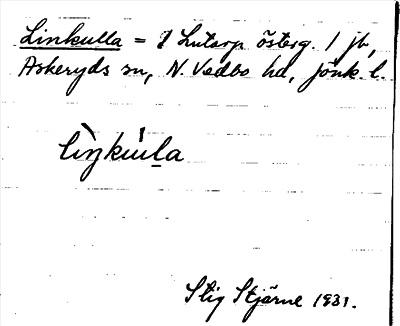 Linkulla = 1 Lutarp österg. 1 jb,
Askeryds sn, N. Vedbo hd, jönk. l.
lìŋkúla
Stig Stjärne 1931.